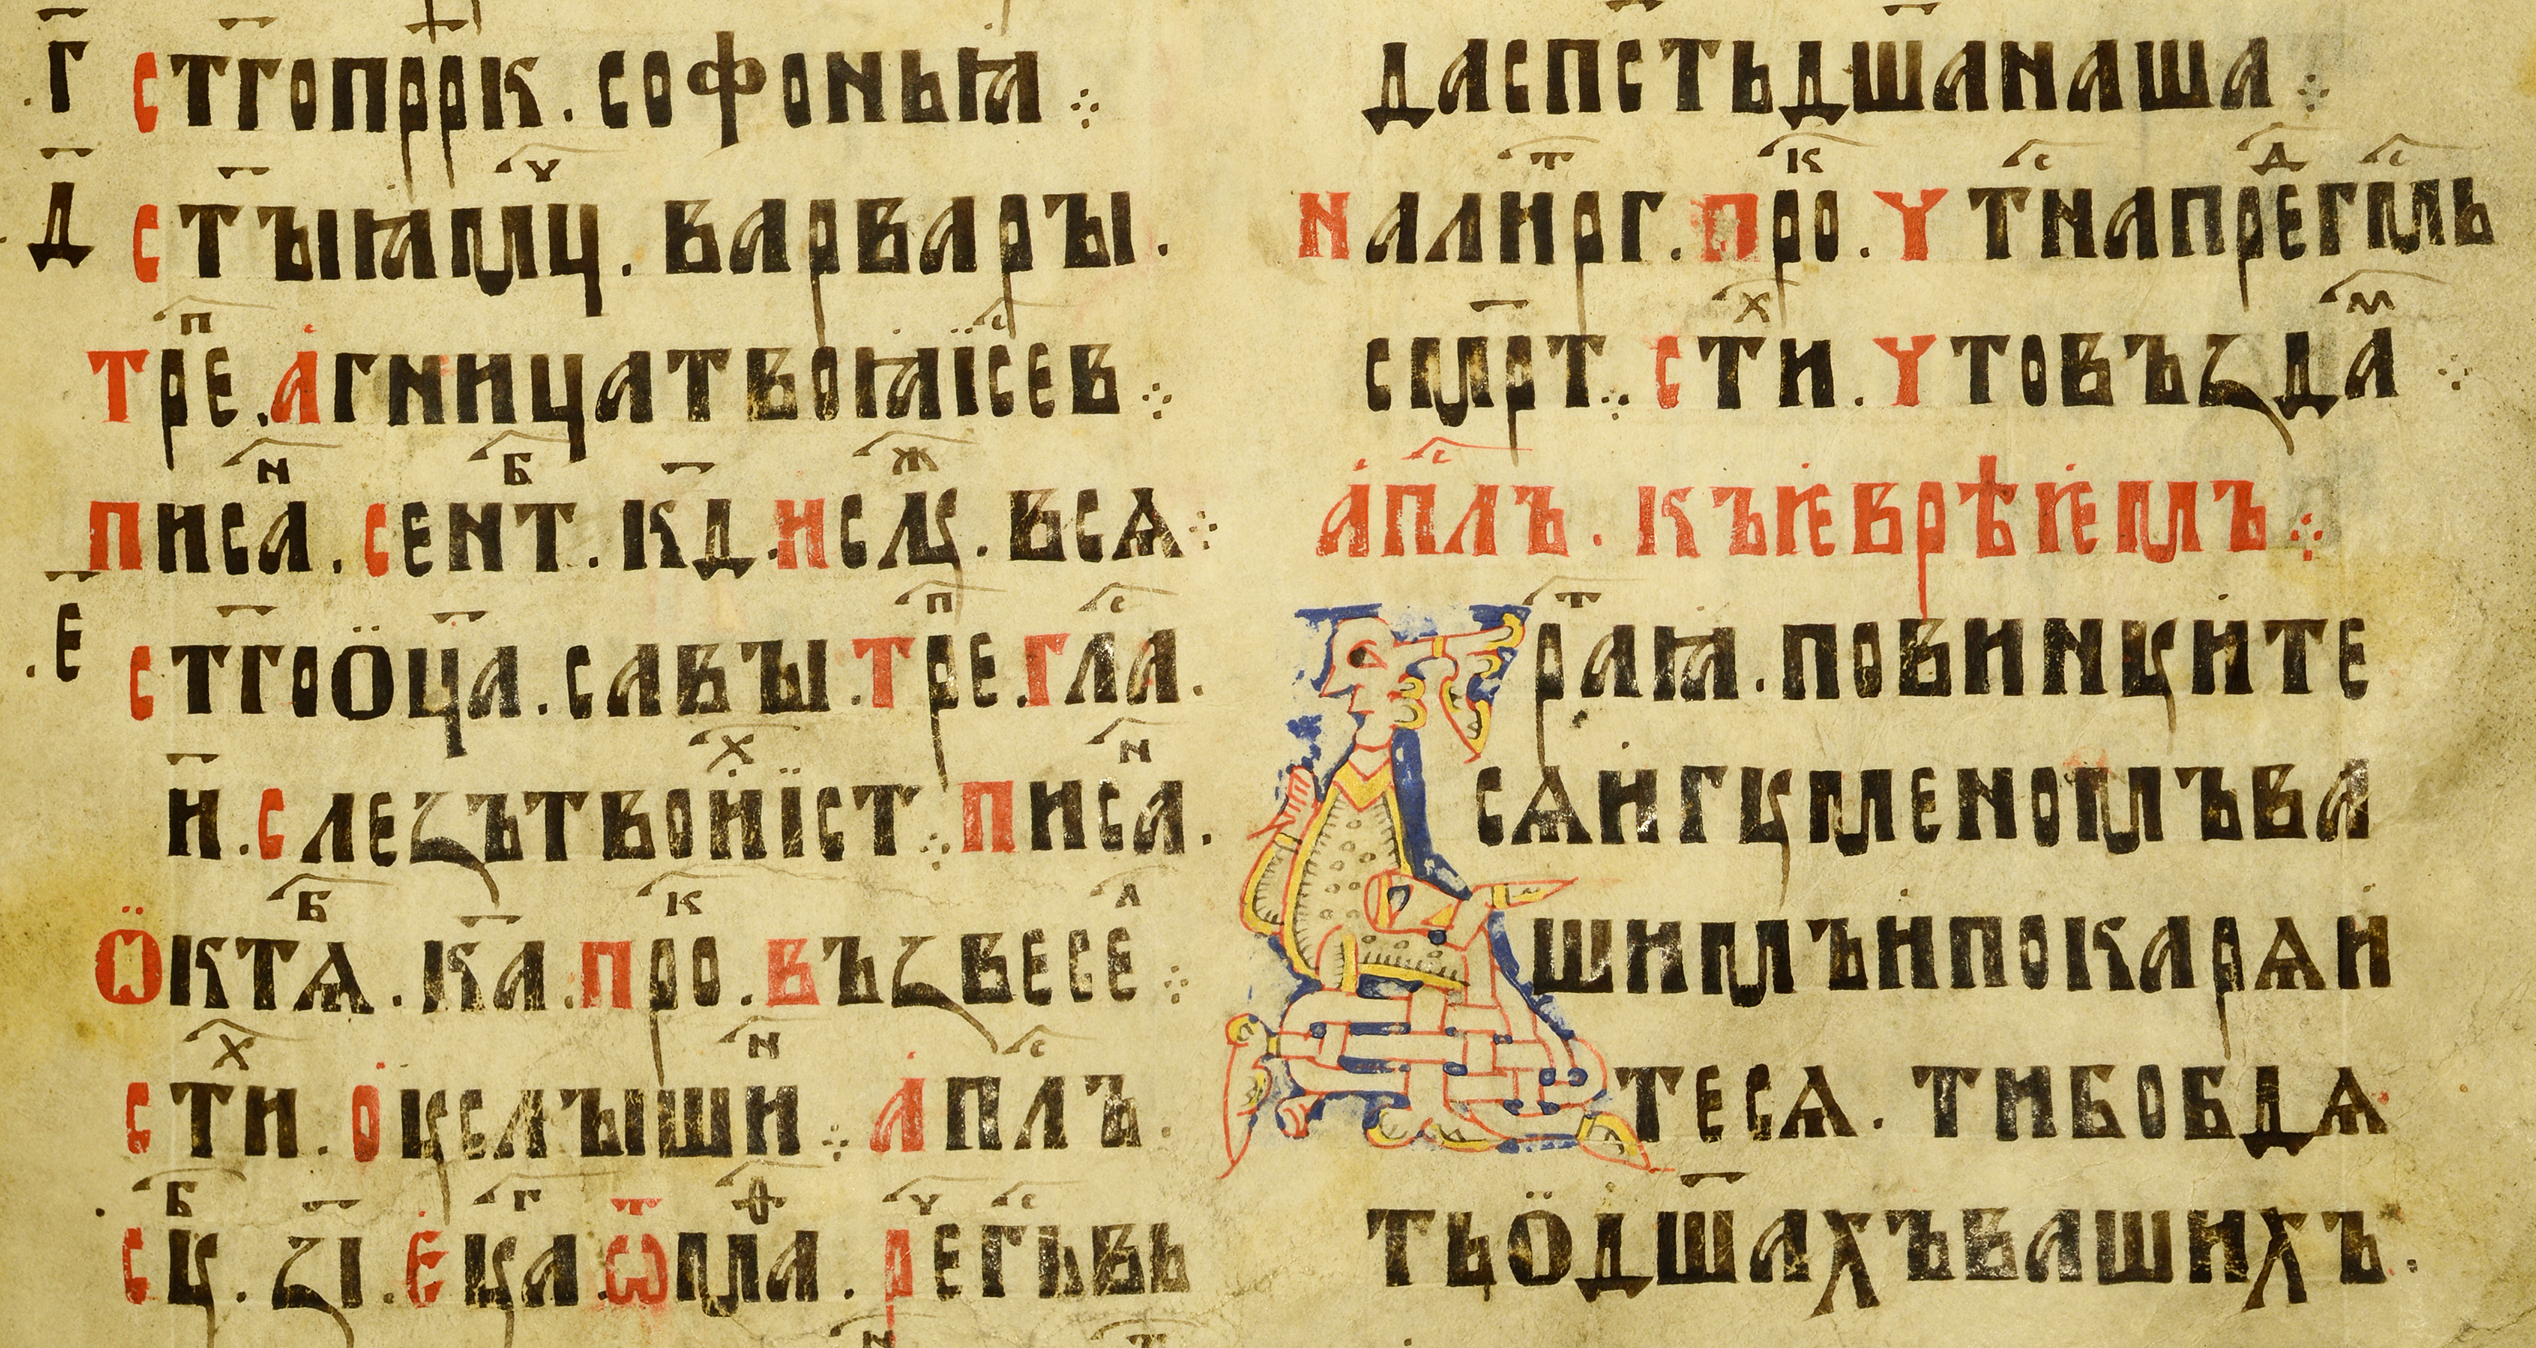 .г҃ ст҃гопррк . софоньꙗ ⁘
.д҃ ст҃ыꙗмⷱ҇ц . варвары .
трⷫ҇е . агницатвоꙗїⷭ҇сев ⁘
писⷩ҇а . сеⷠ҇нт . к҃д . ислⷤ҇ꙋ . всѧ ⁘
.е҃ ст҃гоѻц҃а . савы . трⷫ҇е . глⷭ҇а .
и҃ . слеꙁътвоиⷯїст ⁘ писⷩ҇а .
ѻктⷠ҇ѧ . к҃а . прⷦ҇о . въꙁвесеⷧ҇ ⁘
стⷯ҇и . оꙋслышиⷩ҇ ⁘ апⷭ҇лъ .
сⷠ҇ꙋ . ꙁ҃і . еꙋⷢ҇а . ѿмⷴ҇а . рⷱ҇егⷭ҇ьвь
даспⷭ҇тьдш҃анаша ⁘
налиⷮ҇рг . прⷦ҇о . чтⷭ҇напреⷣ҇гⷭ҇мь
см҃рт ⁘ стⷯ҇и . чтовъꙁдаⷨ҇ ⁘
апⷭ҇лъ . къѥврѣѥмъ ⁘
раⷮ҇ꙗ . повинꙋите
сѧигꙋменомъва
шимъипокарѧи
тесѧ . тибобдѧ
тьѻдш҃ахъвашихъ .